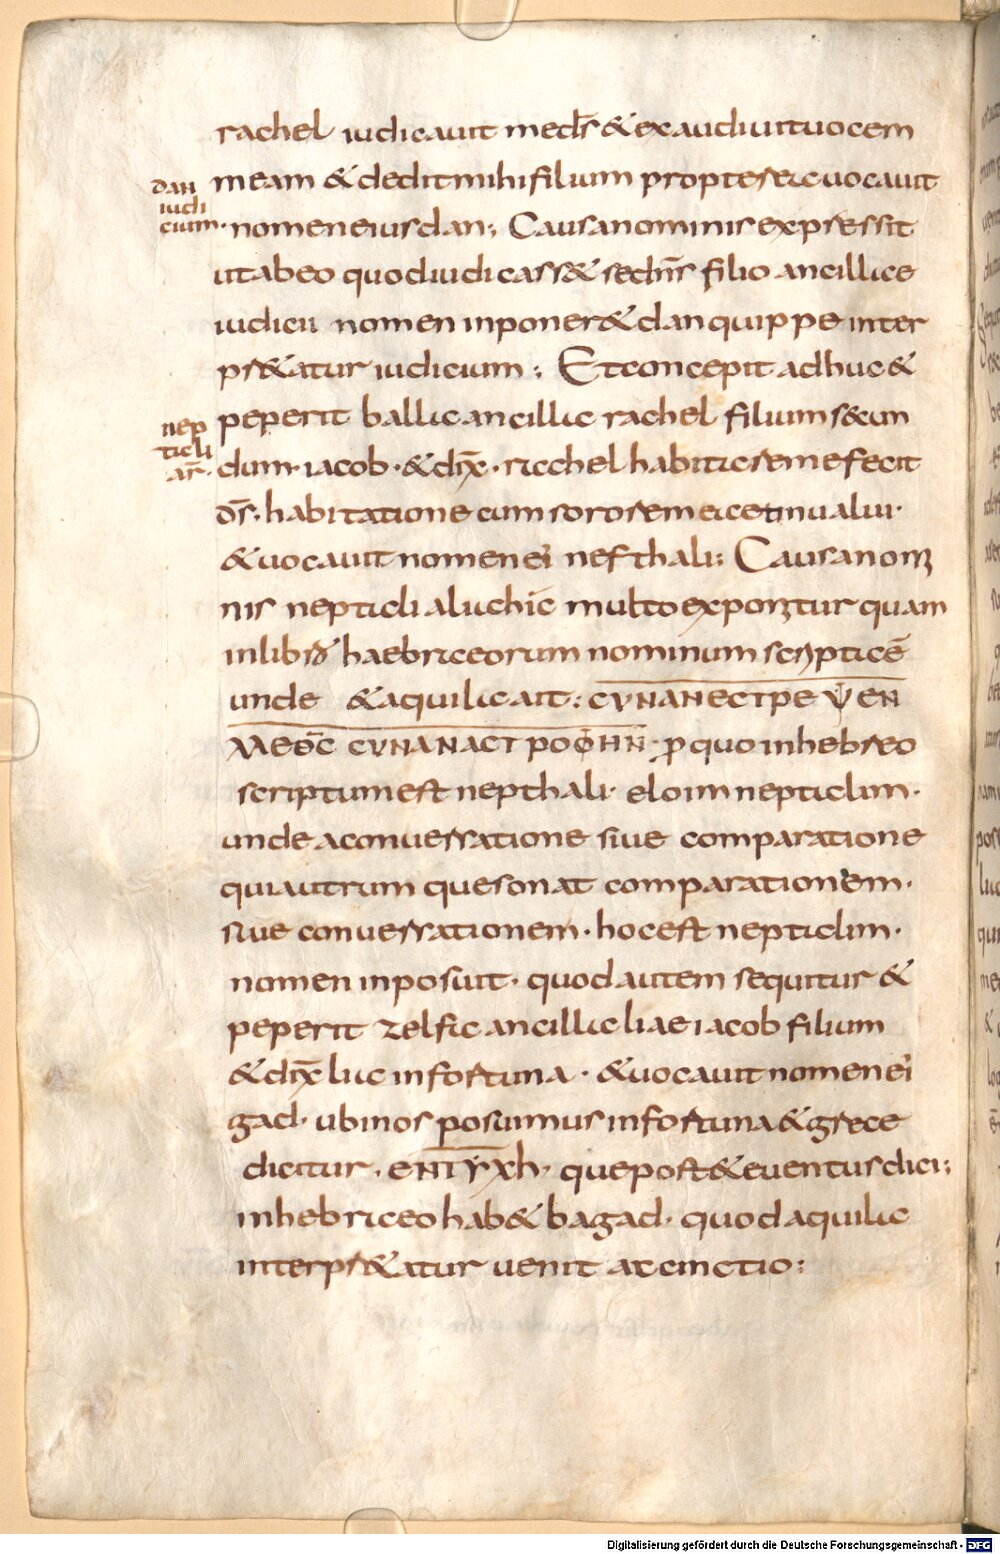 rachel iudicauit me ds̄ & exaudiuit uocem
meam & dedit mihi filium propterea uocauit
dan
iudi
cium·
nomen eius dan; Causa nominis expressit
ut ab eo quod iudicass& se dn̄s filio ancillae
iudicii nomen inponer& dan quippe inter
pr&atur iudicium; Et concepit adhuc &
peperit balla ancilla rachel filium secun
nep
tali
ar̄·
dum· iacob· & dix̄· rachel habitare me fecit
ds̄· habitatione cum sorore mea et inualui·
& uocauit nomen ei' nefthali; Causa nomi
nis neptali aliud hic multo exponitur quam
in libro haebraeorum nominum scriptū ē
unde & aquila ait: CYNANECTPEΨEN
ME ΘC̄ CYNANACTPOΦHN· p quo in hebreo
scriptum est nepthali· eloim neptalim·
unde a conuersatione siue comparatione
quia utrumque sonat comparationem·
siue conuersationem· hoc est neptalim·
nomen inposuit· quod autem sequitur &
peperit zelfa ancilla liae iacob filium
& dix̄ lia in fortuna· & uocauit nomen ei'
gad· ubi nos posuimus in fortuna & grece
dicitur· ENTYXH· que post & euentus dici;
in hebraeo hab& bagad· quod aquila
interpr&atur uenit accinctio:
Digitalisierung gefördert durch die Deutsche Forschungsgemeinschaft - DFG